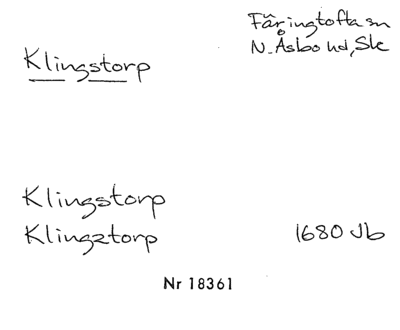 Färingtofta sn
N. Åsbo hd, Sk
Klingstorp
Klingstorp
Klingztorp 1680 Jb
Nr 18361